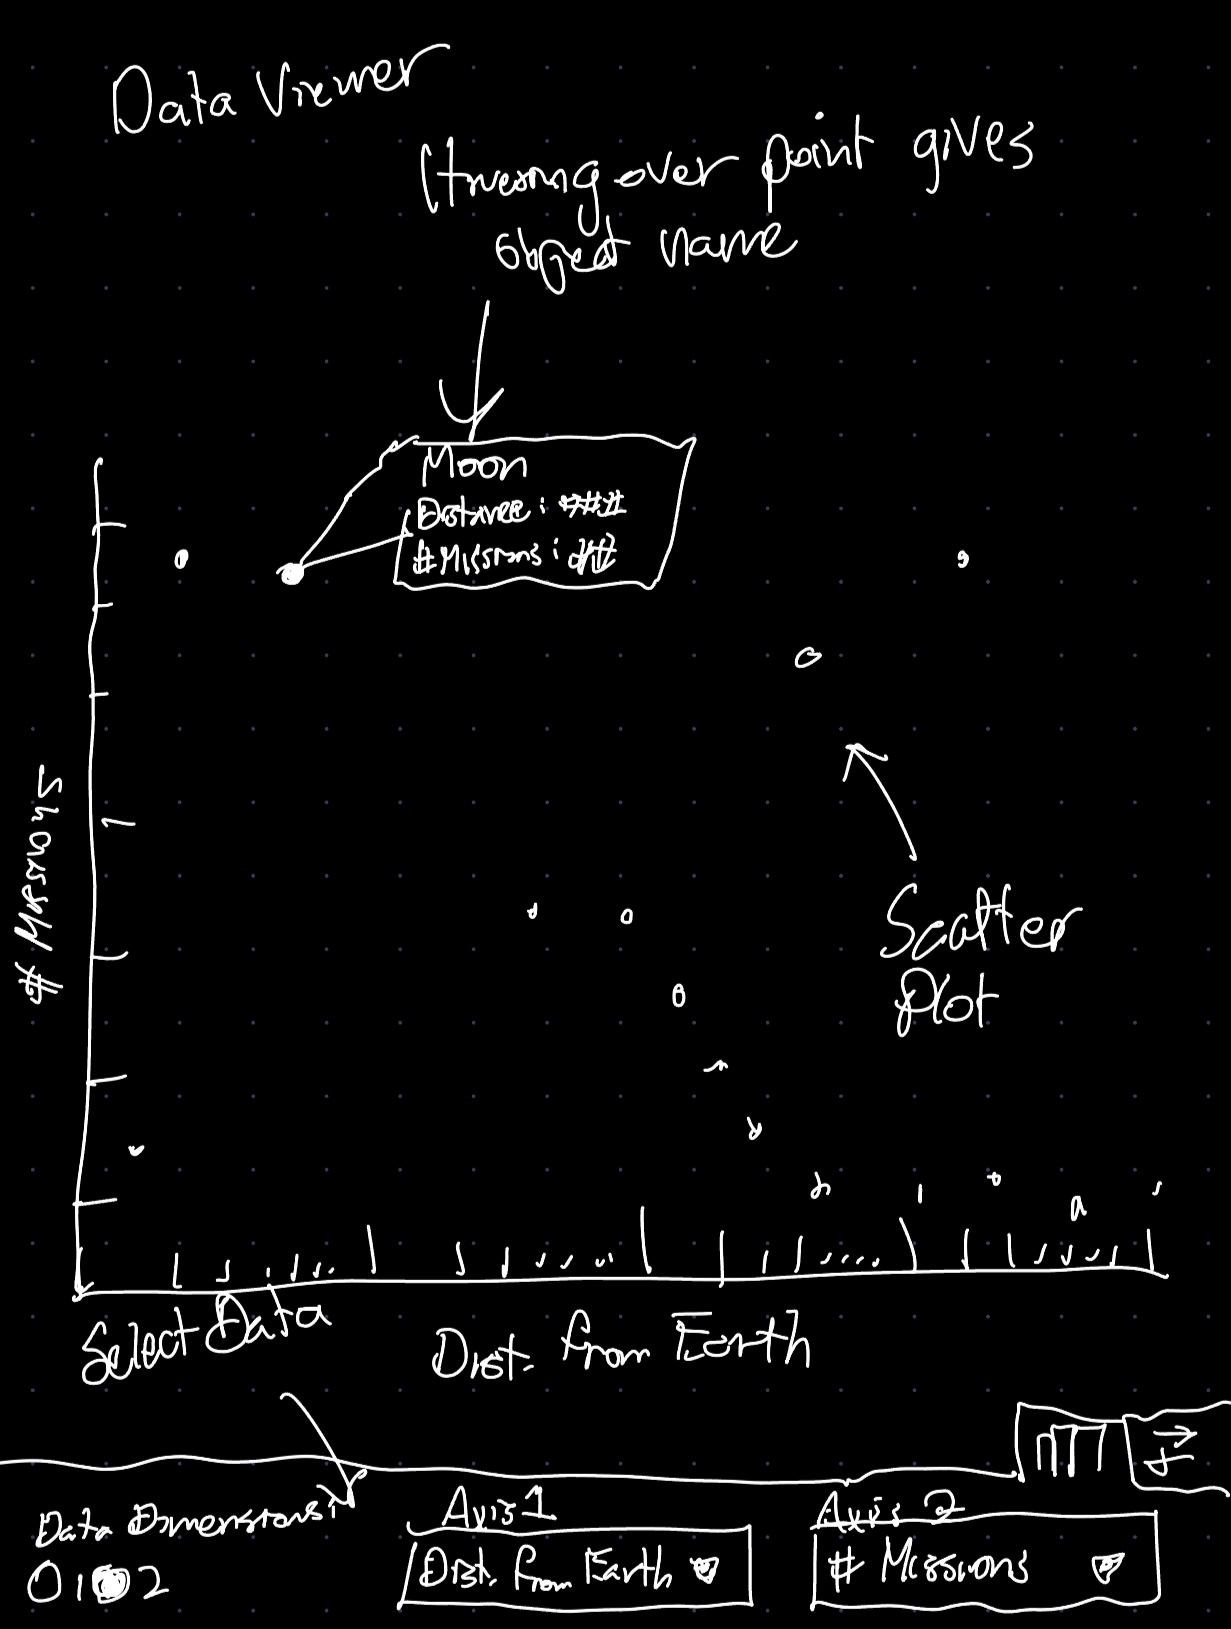 Data Viewer
Hovering over point gives
object name
Moon
Distance: ###
# Missions: ##
# Missions
Scatter
Plot
Select Data
Dist. from Earth
Data Dimensions:
1 2
Axis 1
Dist. from Earth
Axis 2
# Missions